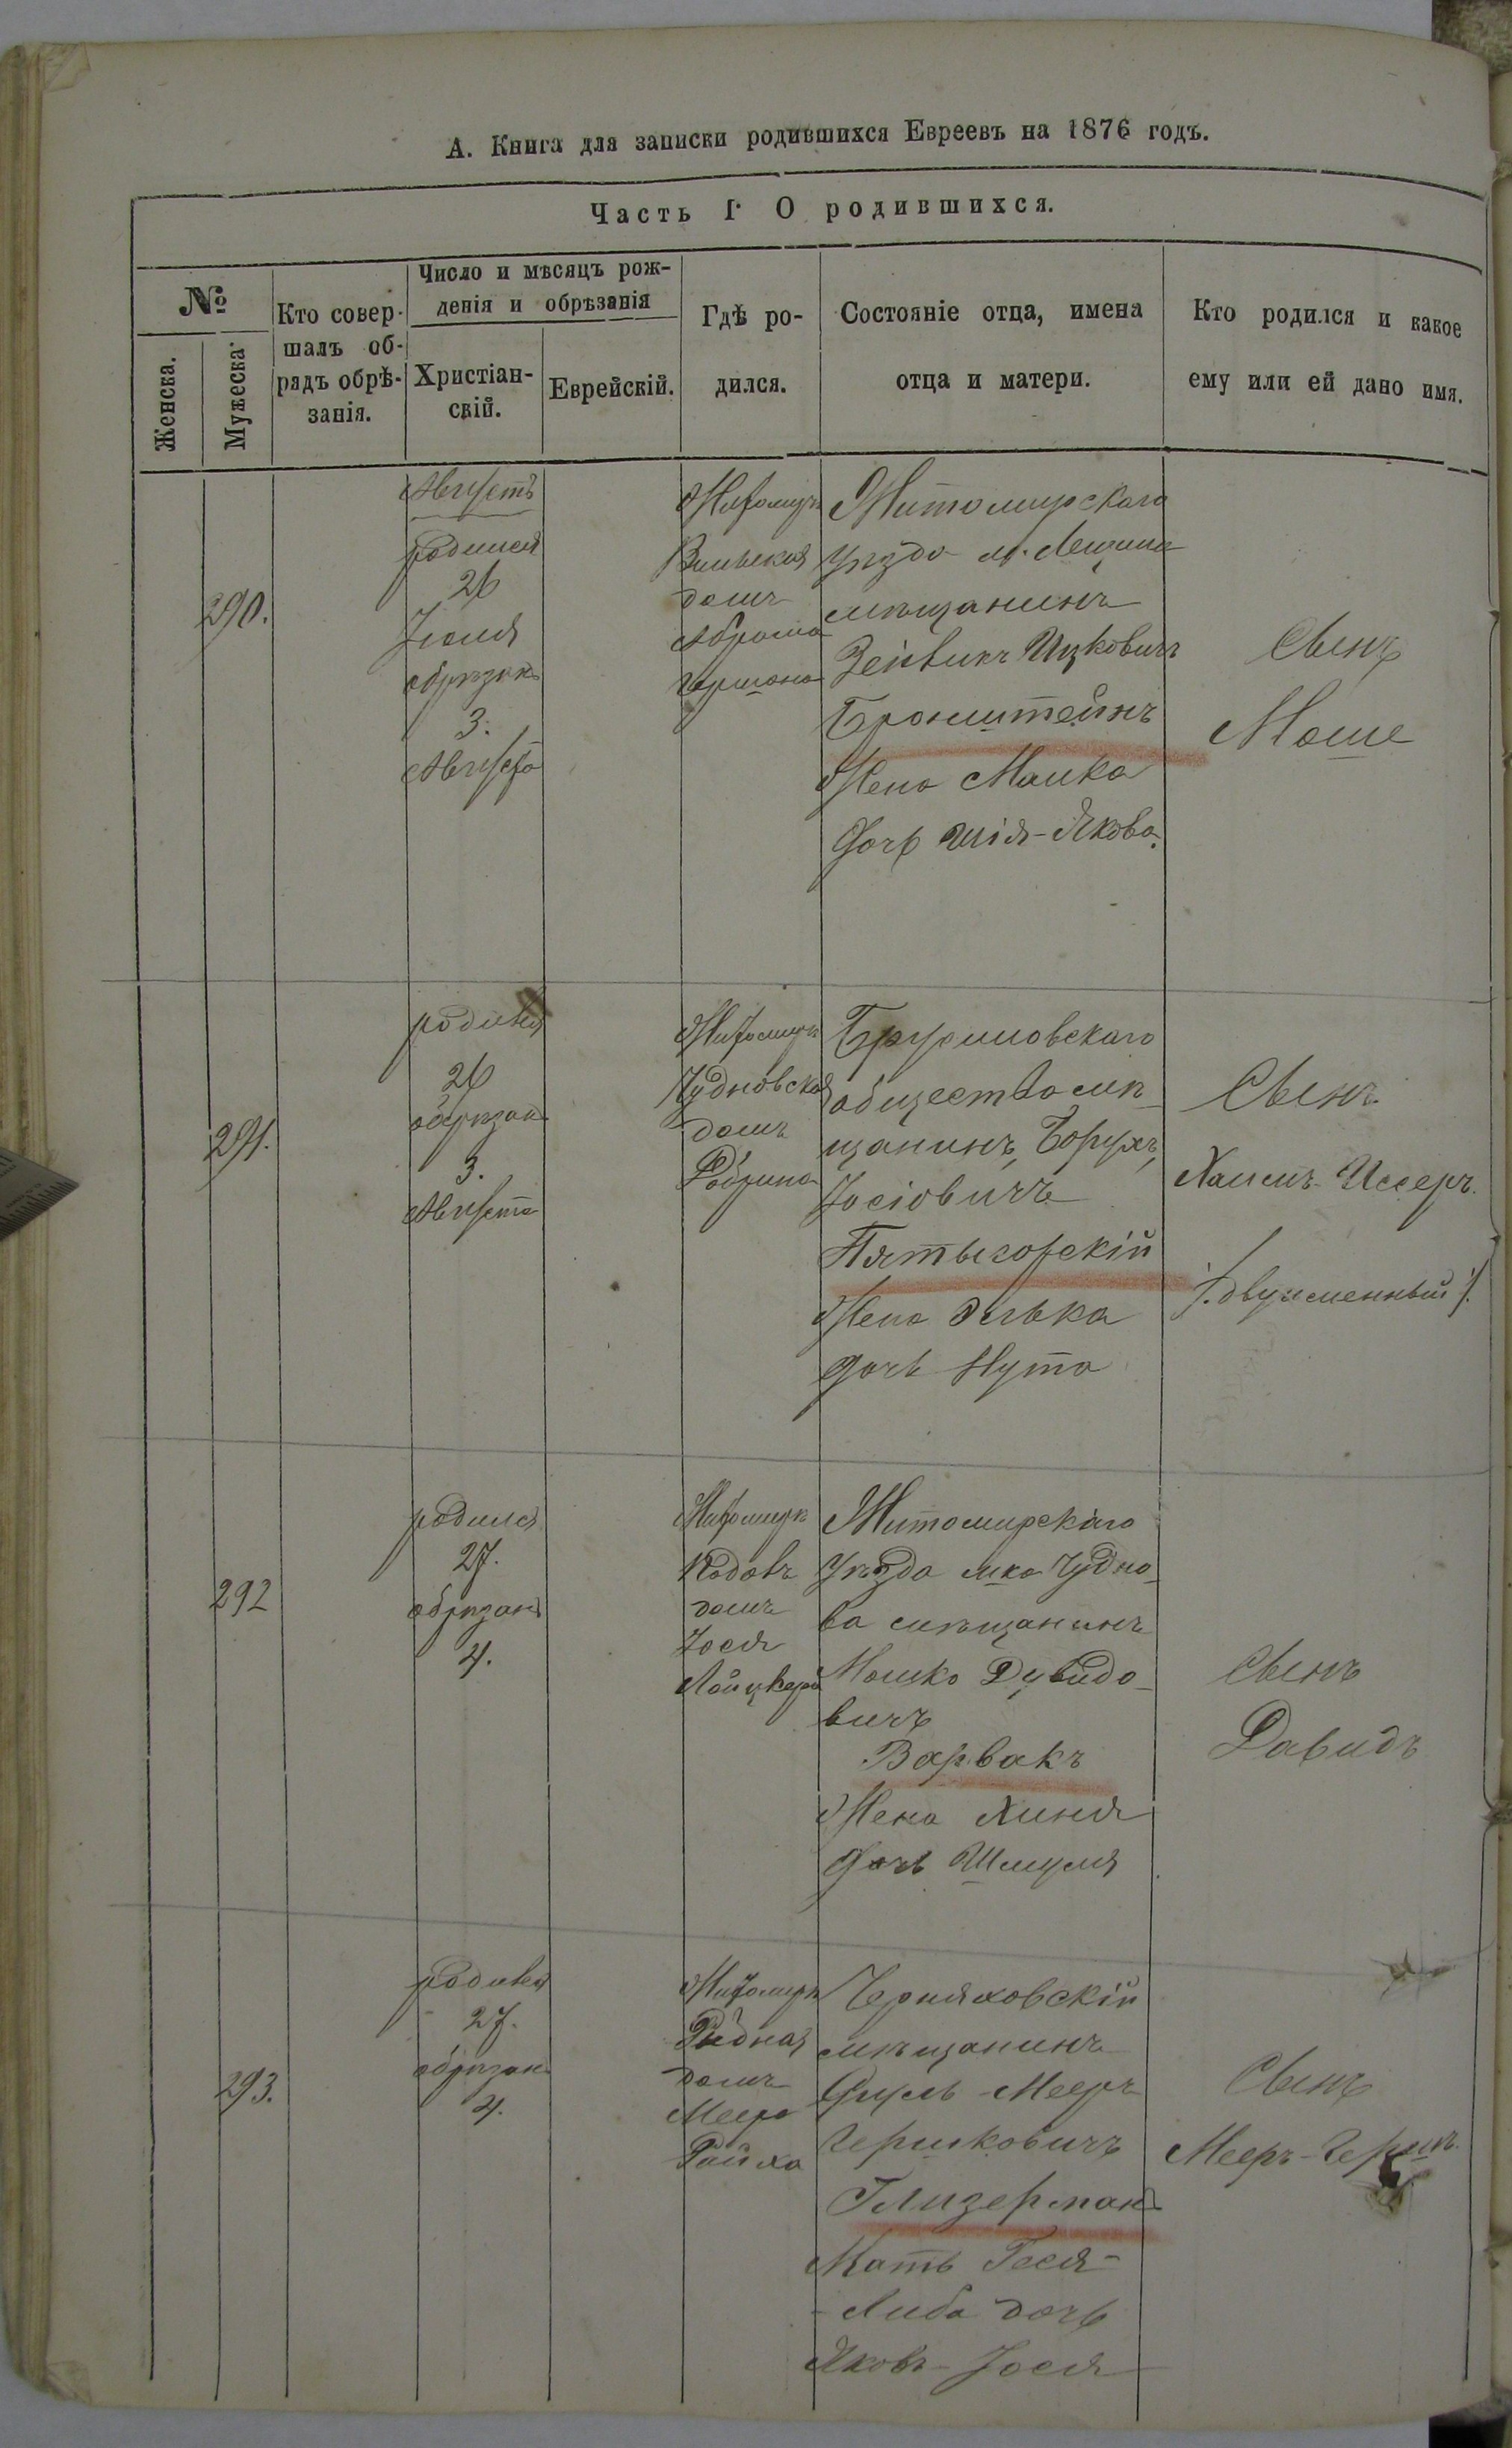 А. Книга для записки родившихся Евреевъ на 1876 годъ.
Часть I. О родившихся.
№
Женска.
Мужеска.
Кто совер-
шалъ об-
рядъ обрѣ-
занія.
Число и мѣсяцъ рож-
денія и обрѣзанія
Христіан-
скій.
Еврейскій.
Гдѣ ро-
дился.
Состояніе отца, имена
отца и матери.
Кто родился и какое
ему или ей дано имя.
290.
Августъ
родился
26
Іюля
обрезанъ
3.
Августа
Житомиръ
Вильская
домъ
Абрама
Гершона
Житомирскаго
уѣзда м. Лещина
мѣщанинъ
Зейвикъ Ицковичъ
Бронштейнъ
Жена Малка
дочь Шія-Якова.
Сынъ
Моше
291.
родился
26
обрѣзанъ
3.
Августа
Житомиръ
Чудновская
домъ
Брусиловскаго
общества мѣ-
щанинъ, Борухъ
Іосіовичъ
Пятыгорскій
Жена Элька
дочь Нута
Сынъ
Хаимъ-Иссеръ
/:двуименный:/
292
родился
27.
обрѣзанъ
4.
Житомиръ
домъ
Іося
Житомирскаго
Уѣзда мка Чудно-
ва мѣщанинъ
Мошко Дувидо-
вичъ
Варвакъ
Жена Хиня
дочь Шмуля
Сынъ
Давидъ
293.
родился
27.
обрѣзанъ
4.
Житомиръ
Рыбная
домъ
Меера
Черняховскій
мѣщанинъ
Сруль-Мееръ
Гершковичъ
Глизерманъ
Мать Гося-
-Либа дочь
Яковъ-Іося
Сынъ
Мееръ-Гершъ